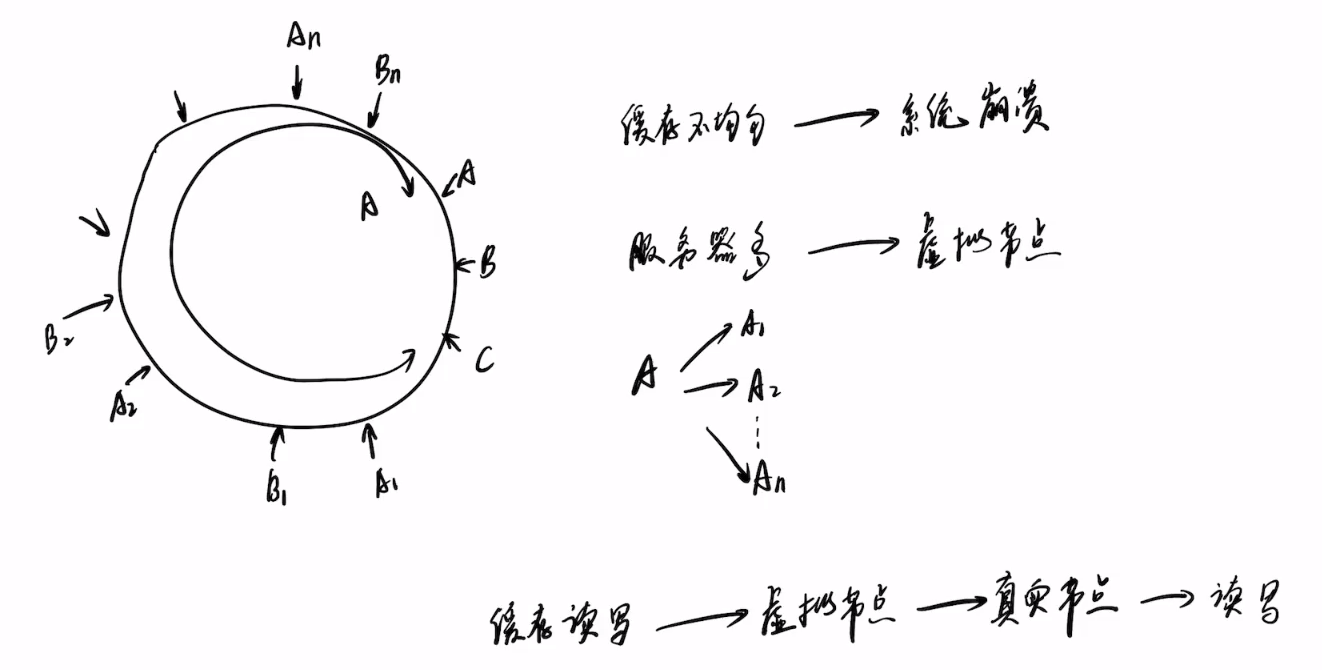 An
Bn
A
A
B
C
A1
B1
A2
B2
缓存不均匀 → 系统崩溃
服务器多 → 虚拟节点
A
A1
A2
An
缓存读写 → 虚拟节点 → 真实节点 → 读写